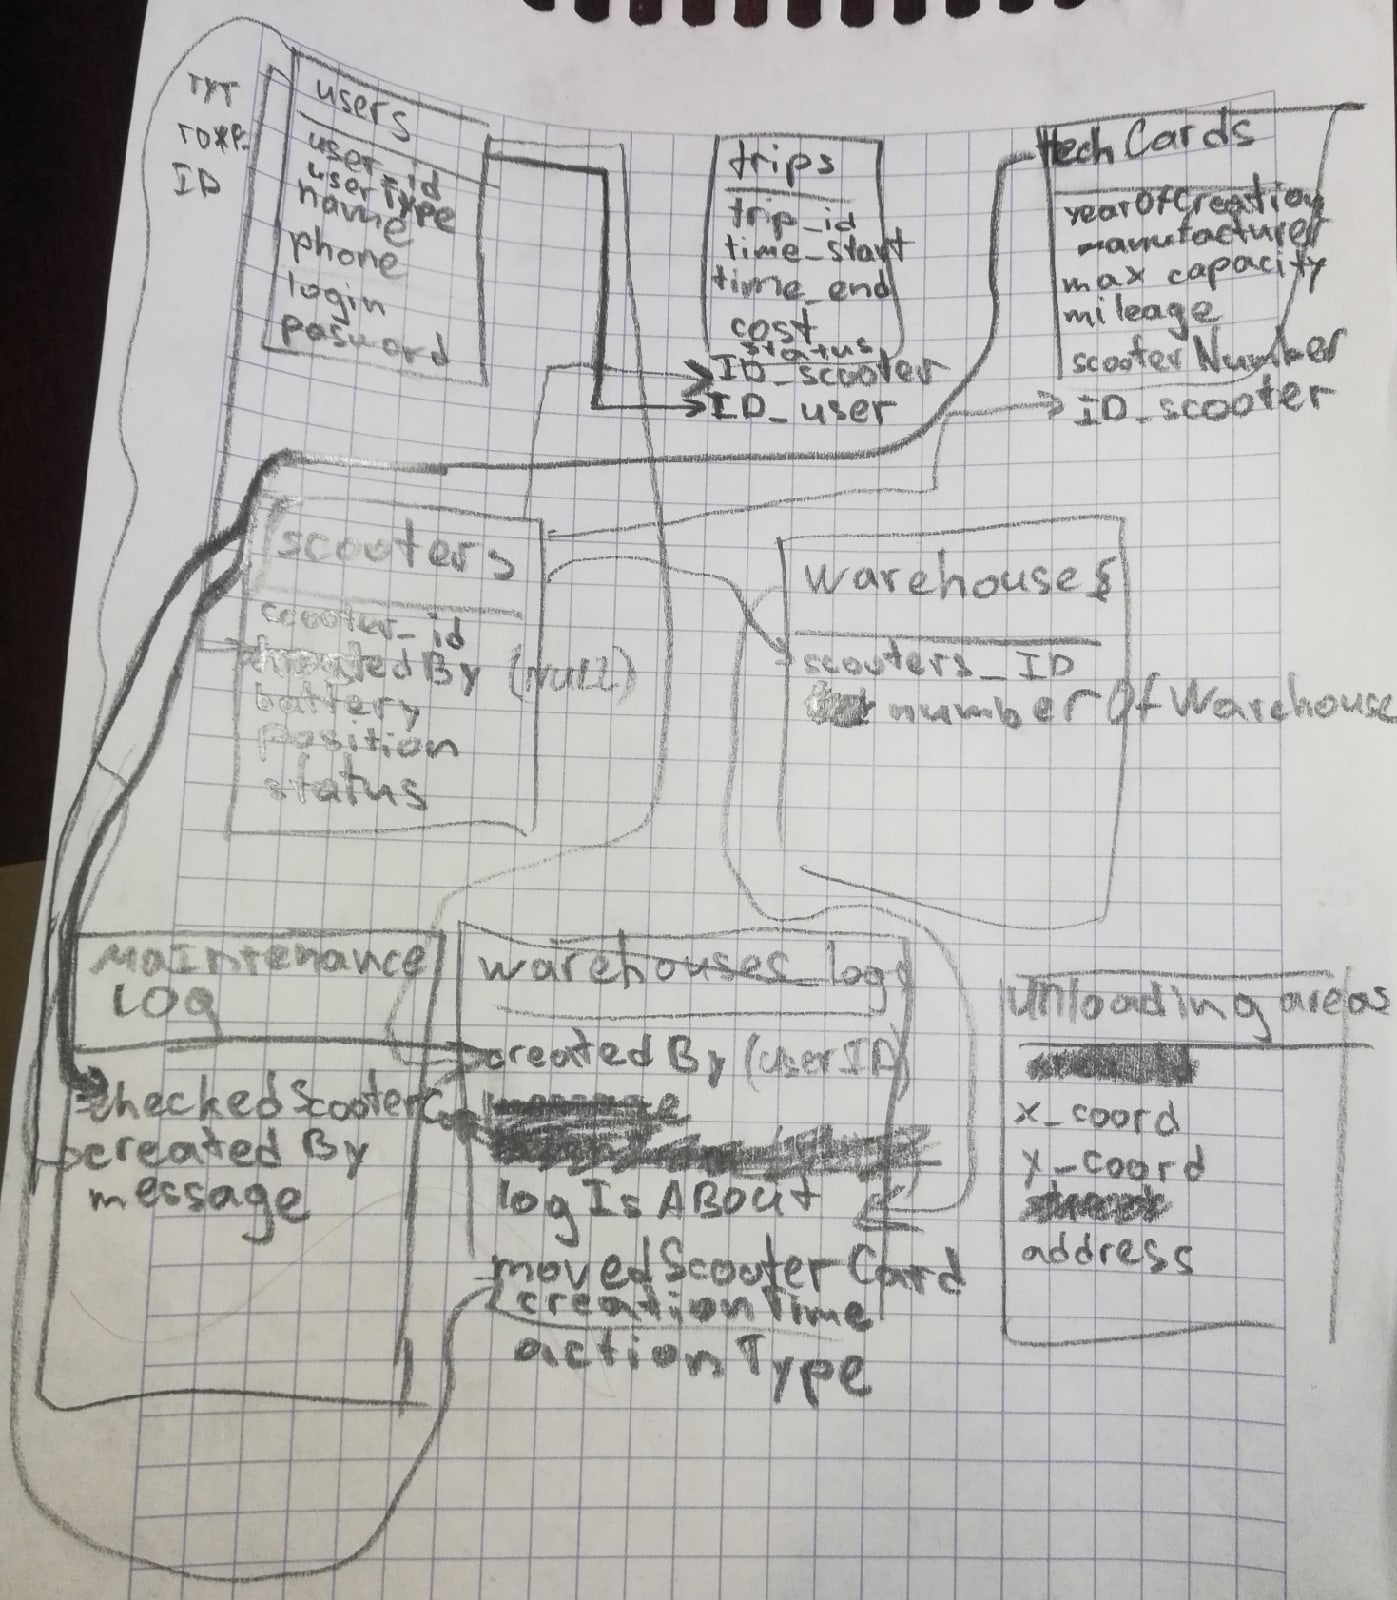 ТУТ
ТОЖЕ
ID
users
user_id
userType
name
phone
login
pasword
trips
trip_id
time_start
time_end
cost
status
ID_scooter
ID_user
tech Cards
yearOfCreation
manufacturer
max capacity
mileage
scooterNumber
ID_scooter
scooters
scooter_id
createdBy (NULL)
battery
position
status
warehouses
scooters_ID
numberOfWarehouse
Maintenance
LOG
checkedScooterCard
createdBy
message
warehouses_logs
createdBy (userID)
logIsABOUT
movedScooterCard
creationTime
actionType
Unloading areas
x_coord
y_coord
address